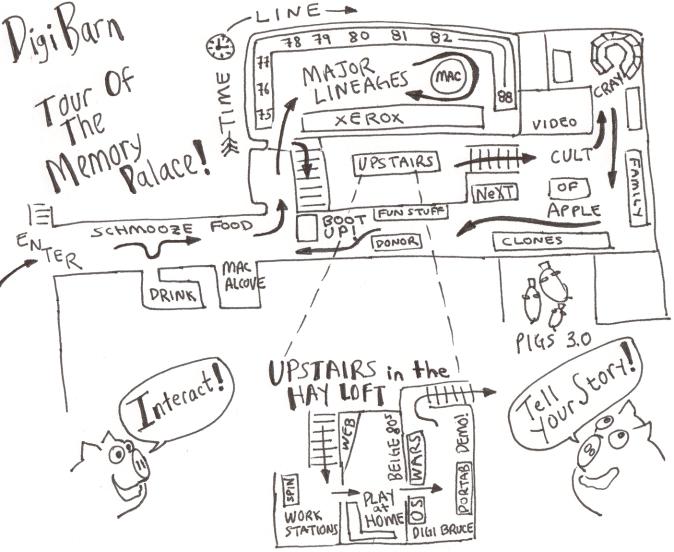 DigiBarn
Tour Of
The
Memory
Palace!
TIME
LINE
75
76
77
78 79 80 81 82
88
MAJOR
LINEAGES
MAC
XEROX
CRAY
VIDEO
UPSTAIRS
CULT
OF
APPLE
NeXT
FAMILY
ENTER
SCHMOOZE
FOOD
BOOT
UP!
FUN STUFF
DONOR
CLONES
DRINK
MAC
ALCOVE
PIGS 3.0
Interact!
Tell
Your Story!
UPSTAIRS in the
HAY LOFT
WEB
BEIGE 80s
WARS
DEMO!
SPIN
WORK
STATIONS
PLAY
at
HOME
OS
PORTAB
DIGI BRUCE